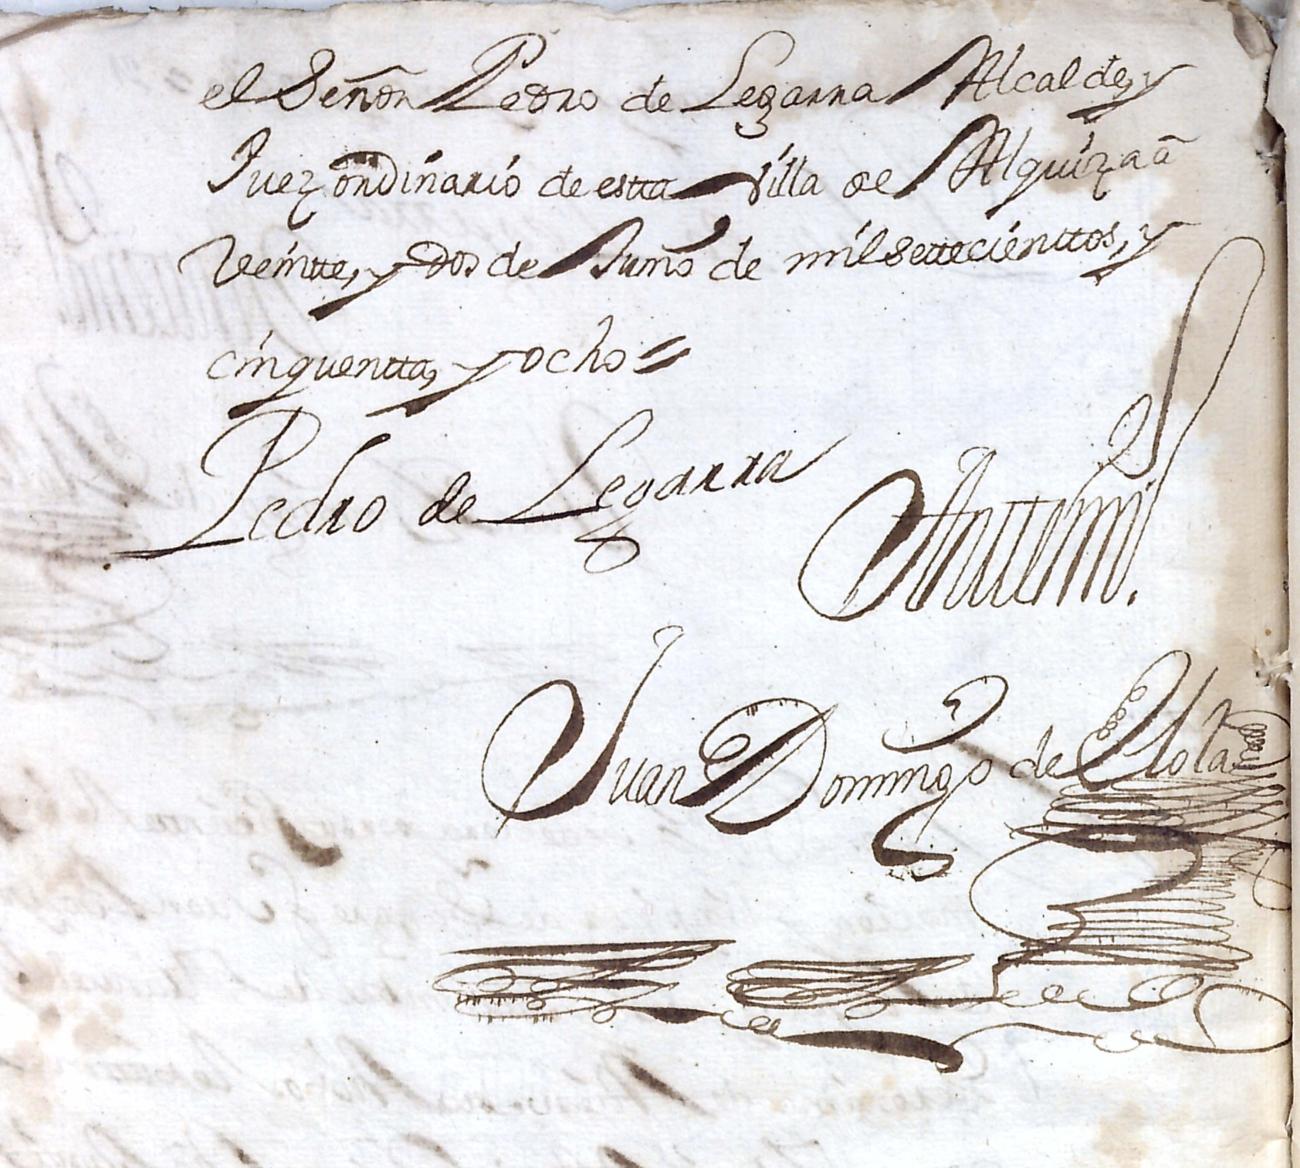 el Señor Pedro de Legarra Alcalde, y
Juez ordinario de estta Villa de Alquiza a
Veintte, y dos de Junio de mil settecienttos, y
cinquentta, y ocho =
Pedro de Legarra
Anttemi.
Juan Domingo de